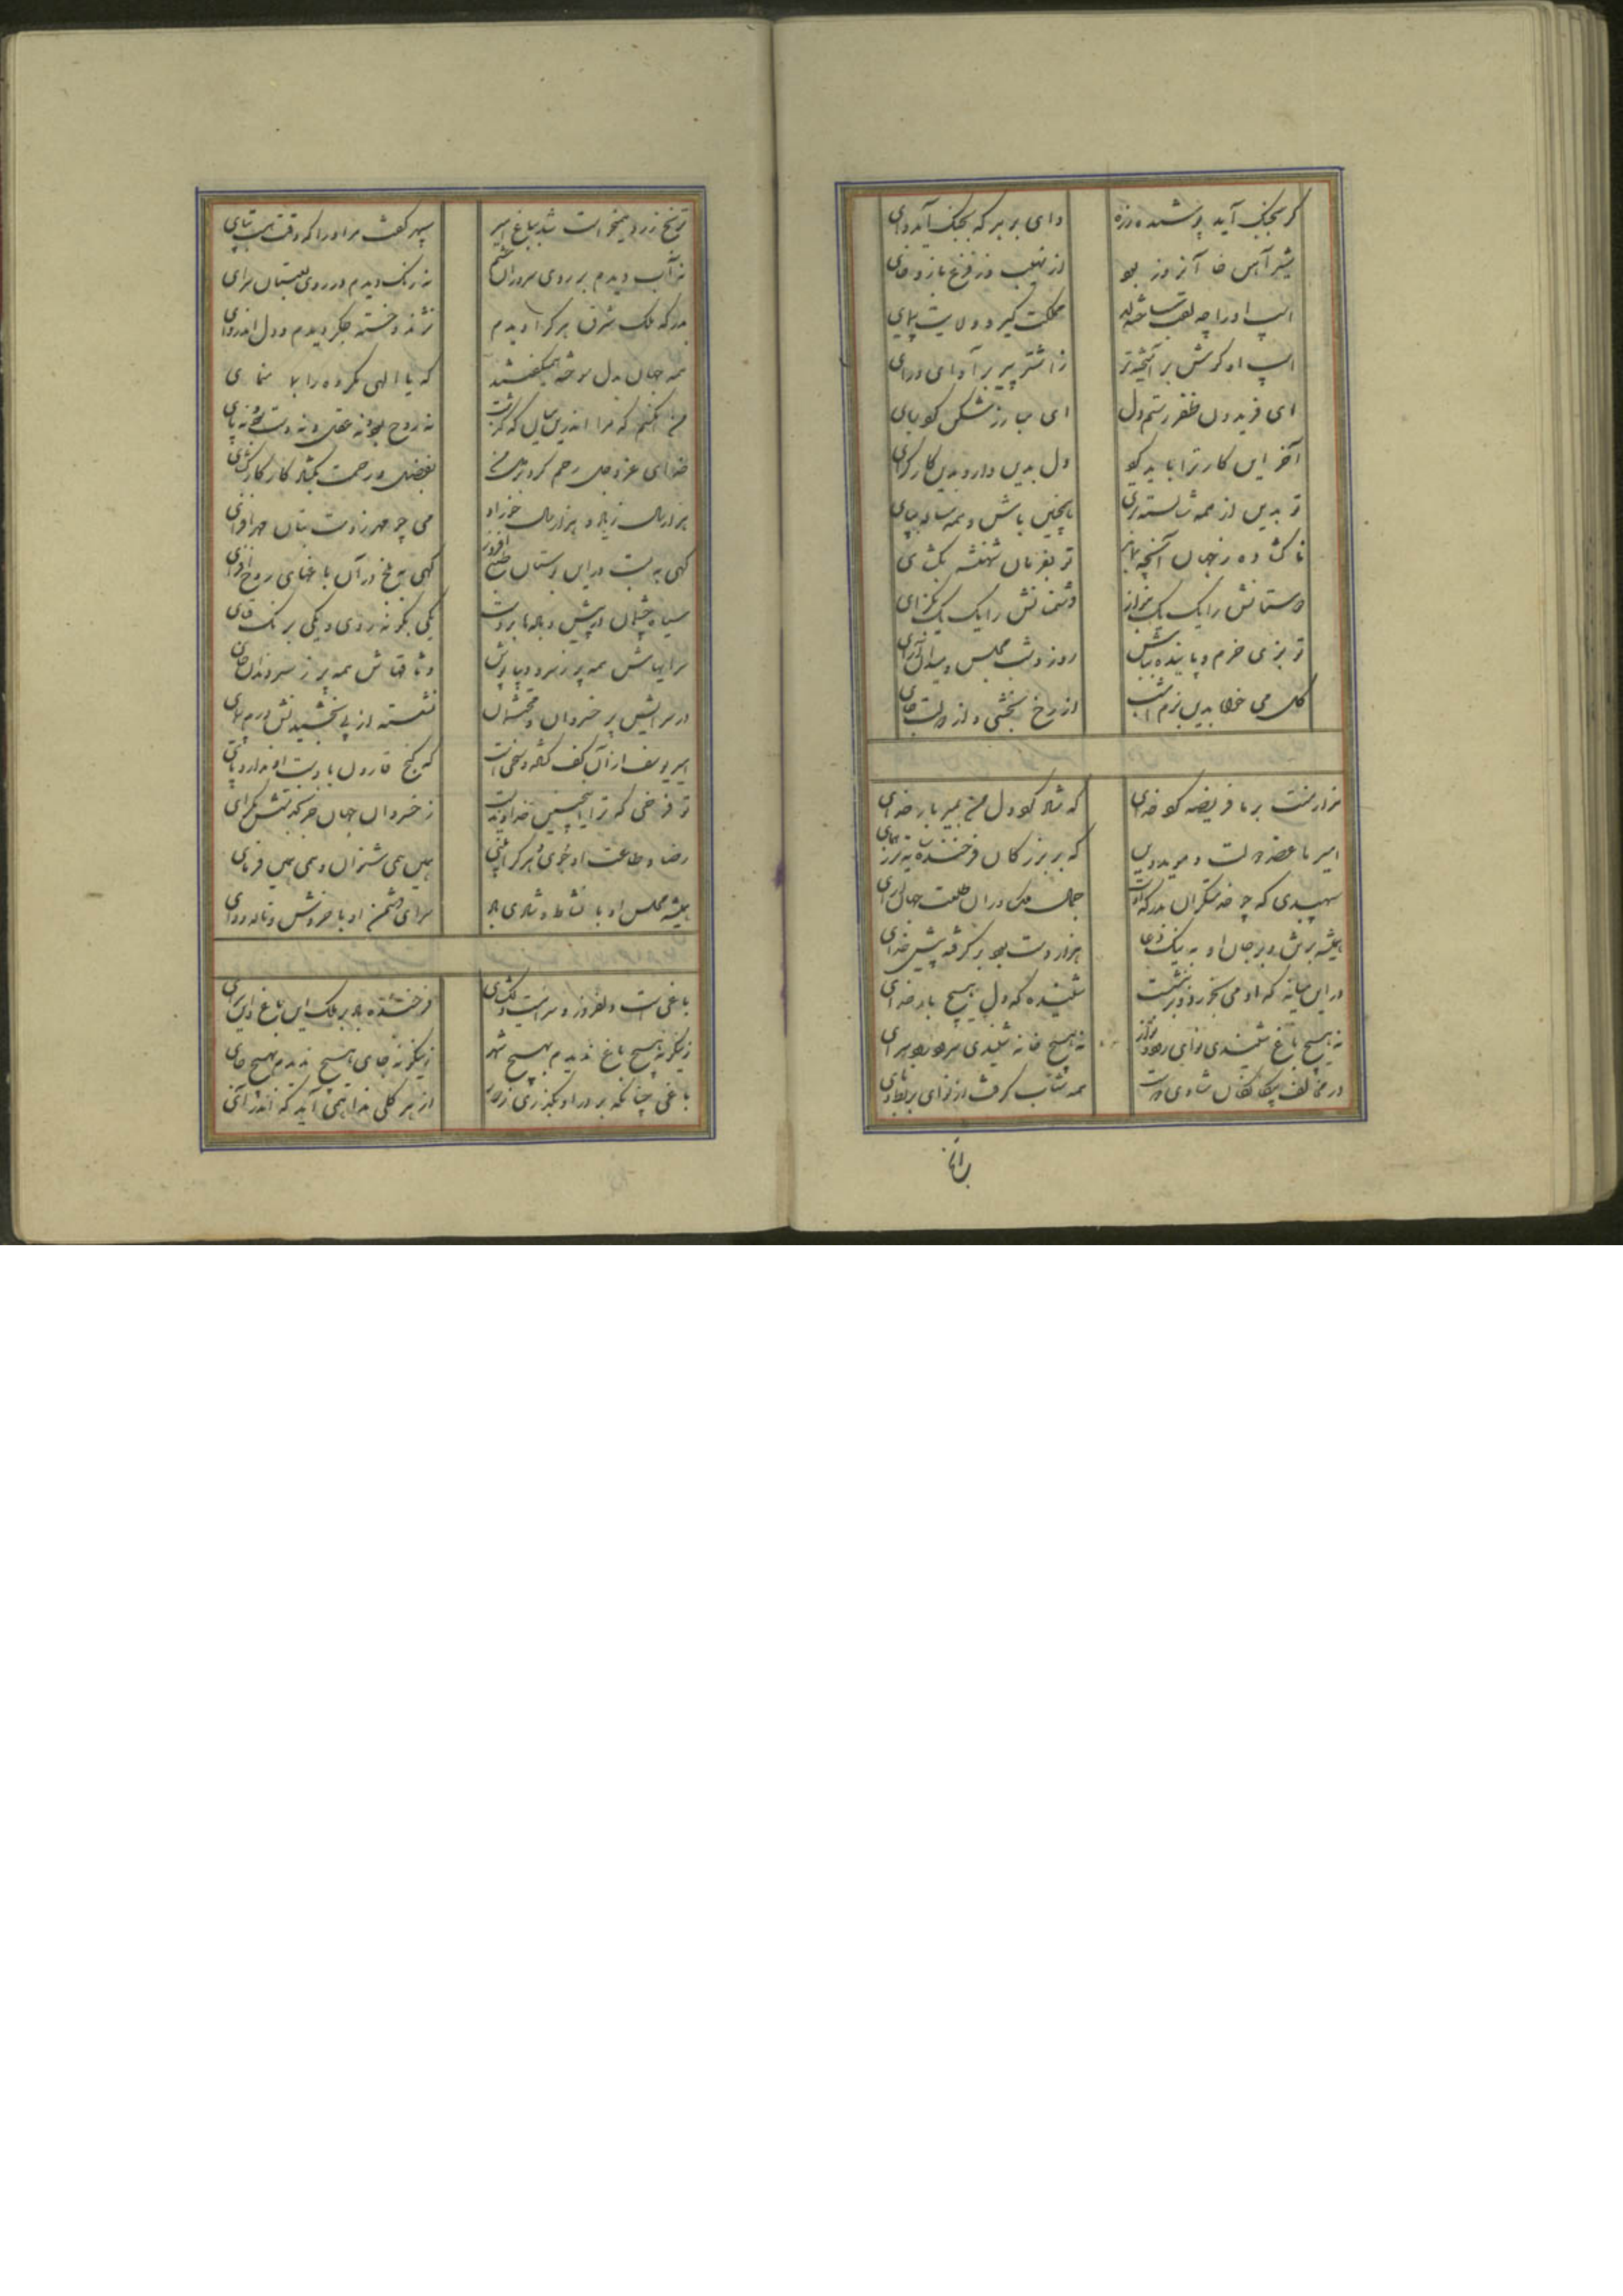 گر بجنگ آید پوشیده زره
وای بر ببر که بجنگ آید وای
شیر آهن خا آنروز بود
از نهیب وز فزع بازو خای
اسپ او را چه لقب ساخته‌اند
مملکت گیر و ولایت پیمای
اسپ او گرش برآمیخته‌تر
ای فریدون ظفر رستم دل
ای مبارز شکن کوبای
آخر این کار ترا باید کو
دل بدین دار و بدین کار گرای
تو بدین از همه شایسته‌تری
همچنین باش و همه ساله بپای
ناگشاده ز جهان آنچه بماند
تو بفرمان شهنشه بگشای
دوستانش را یک یک بنواز
دشمنانش را یک یک بگزای
تو بزی خرم و پاینده بباش
روز و شب مجلس و میدان آرای
گل می خواه بدین بزم امشب
از رخ بخشی و از دولت جای
هزار منت بر ما فریضه کرد خدای
که شاد کرد دل من بمیر بار خدای
امیر ما عضد دولت و مؤید دین
که بر بزرگان فرخنده‌تر ز همای
سپهبدی که چو خدمتگران بدرگه اوست
جمال ملک در آن طلعت جهان آرای
همیشه برتن و بر جان او به نیک دعا
هزار دست بود برگرفته پیش خدای
در این میانه که او می نخورد و بر ننشست
شنیده که دل هیچ بار خدای
نه هیچ باغ شنیدی نوای رود نواز
نه هیچ خانه شنیدی سرود رود سرای
در مخالف بیگانگان شادی دوست
همه شتاب گرفت از نوای بربط و نای
ترنج زرد همیخواست شد بباغ امیر
سپهر گفت مر او را که وقت نیست بپای
نه آب دیدم بر روی سروران حشم
نه رنگ دیدم در روی لعبتان سرای
بدرگه ملک شرق هرکرا دیدم
نژند و خسته جگر دیدم و دل اندروای
همه جهان بدل سوخته همیگفتند
که یا الهی مکروه را بما منمای
من آنکسم که مرا اندرین میان که گذشت
نه روح بود و نه عقل و نه دست بود و نه پای
خدای عزوجل رحم کرد بر دل من
بفضل و رحمت بگشاد کار کار گشای
هزار سال زیاد و هزار سال خوراد
می چو مهر ز دست بتان مهر افزای
گهی به بست در این بوستان طبع افروز
گهی به بلخ در آن باغهای روح افزای
سیاه چشمان در پیش و باده‌ها بر دست
یکی بگونه روی و یکی برنگ قبای
سرایهاش همه پر ز سرو دیبا پوش
وثاقهاش همه پر ز سرو ندان خای
در سرایش پر خسروان و محتشمان
نشسته از پی بخشیدنش درم پیمای
امیر یوسف از آن کف گشاده و سخی است
که گنج قارون با دست او ندارد پای
تو فرخی که ترا اینچنین خداوندیست
ز خسروان جهان جز که بتنش مگرای
رضا و طاعت او جوی و هر کرا بینی
همین همی شنوان و همی همین فرمای
همیشه مجلس او با نشاط و شادی باد
سرای دشمن او با خروش و ناله و وای
باغی است دلفروز و سرائیست دلگشای
فرخنده باد بر ملک این باغ و این سرای
زینگونه هیچ باغ ندیدم بهیچ شهر
زینگونه جای هیچ ندیدم بهیچ جای
باغی چنانکه بر در او بگذری ز دور
از هر گلی ندا همی آید که اندر آی
براند